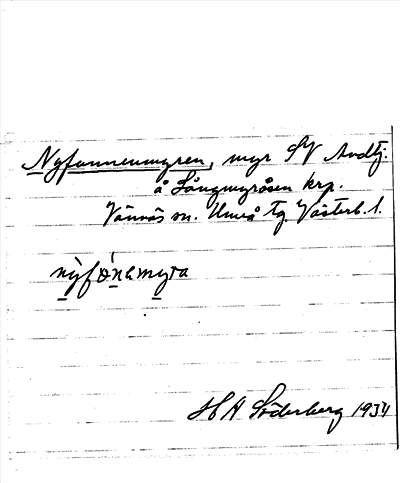 Nyfunnenmyren, myr SV Avdtj.
å Långmyråsen krp.
Vännäs sn. Umeå tg Västerb. l.
H A Söderberg 1934